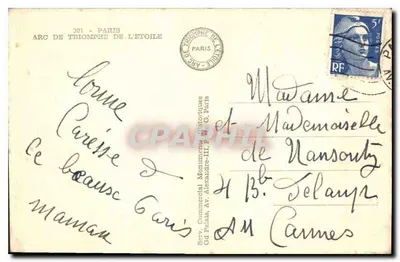 301 - PARIS
ARC DE TRIOMPHE DE L'ETOILE
ARC DE TRIOMPHE DE L'ETOILE
PARIS
5F
RF
bonne
Caresse d
Ce beause Paris
maman
Serv. Commercial Monuments Historiques
Gd Palais, Av. Alexandre-III, Paris
CPAPHIL
Madame
et Mademoiselle
de Nansouty
4 Bd
AM Cannes